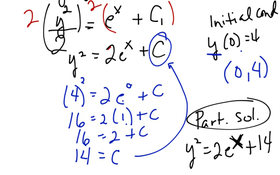 2(y²/2) = 2(eˣ + C₁)
y² = 2eˣ + C
(4)² = 2e⁰ + C
16 = 2(1) + C
16 = 2 + C
14 = C
Initial cond
y(0) = 4
(0,4)
Part. sol.
y² = 2eˣ + 14